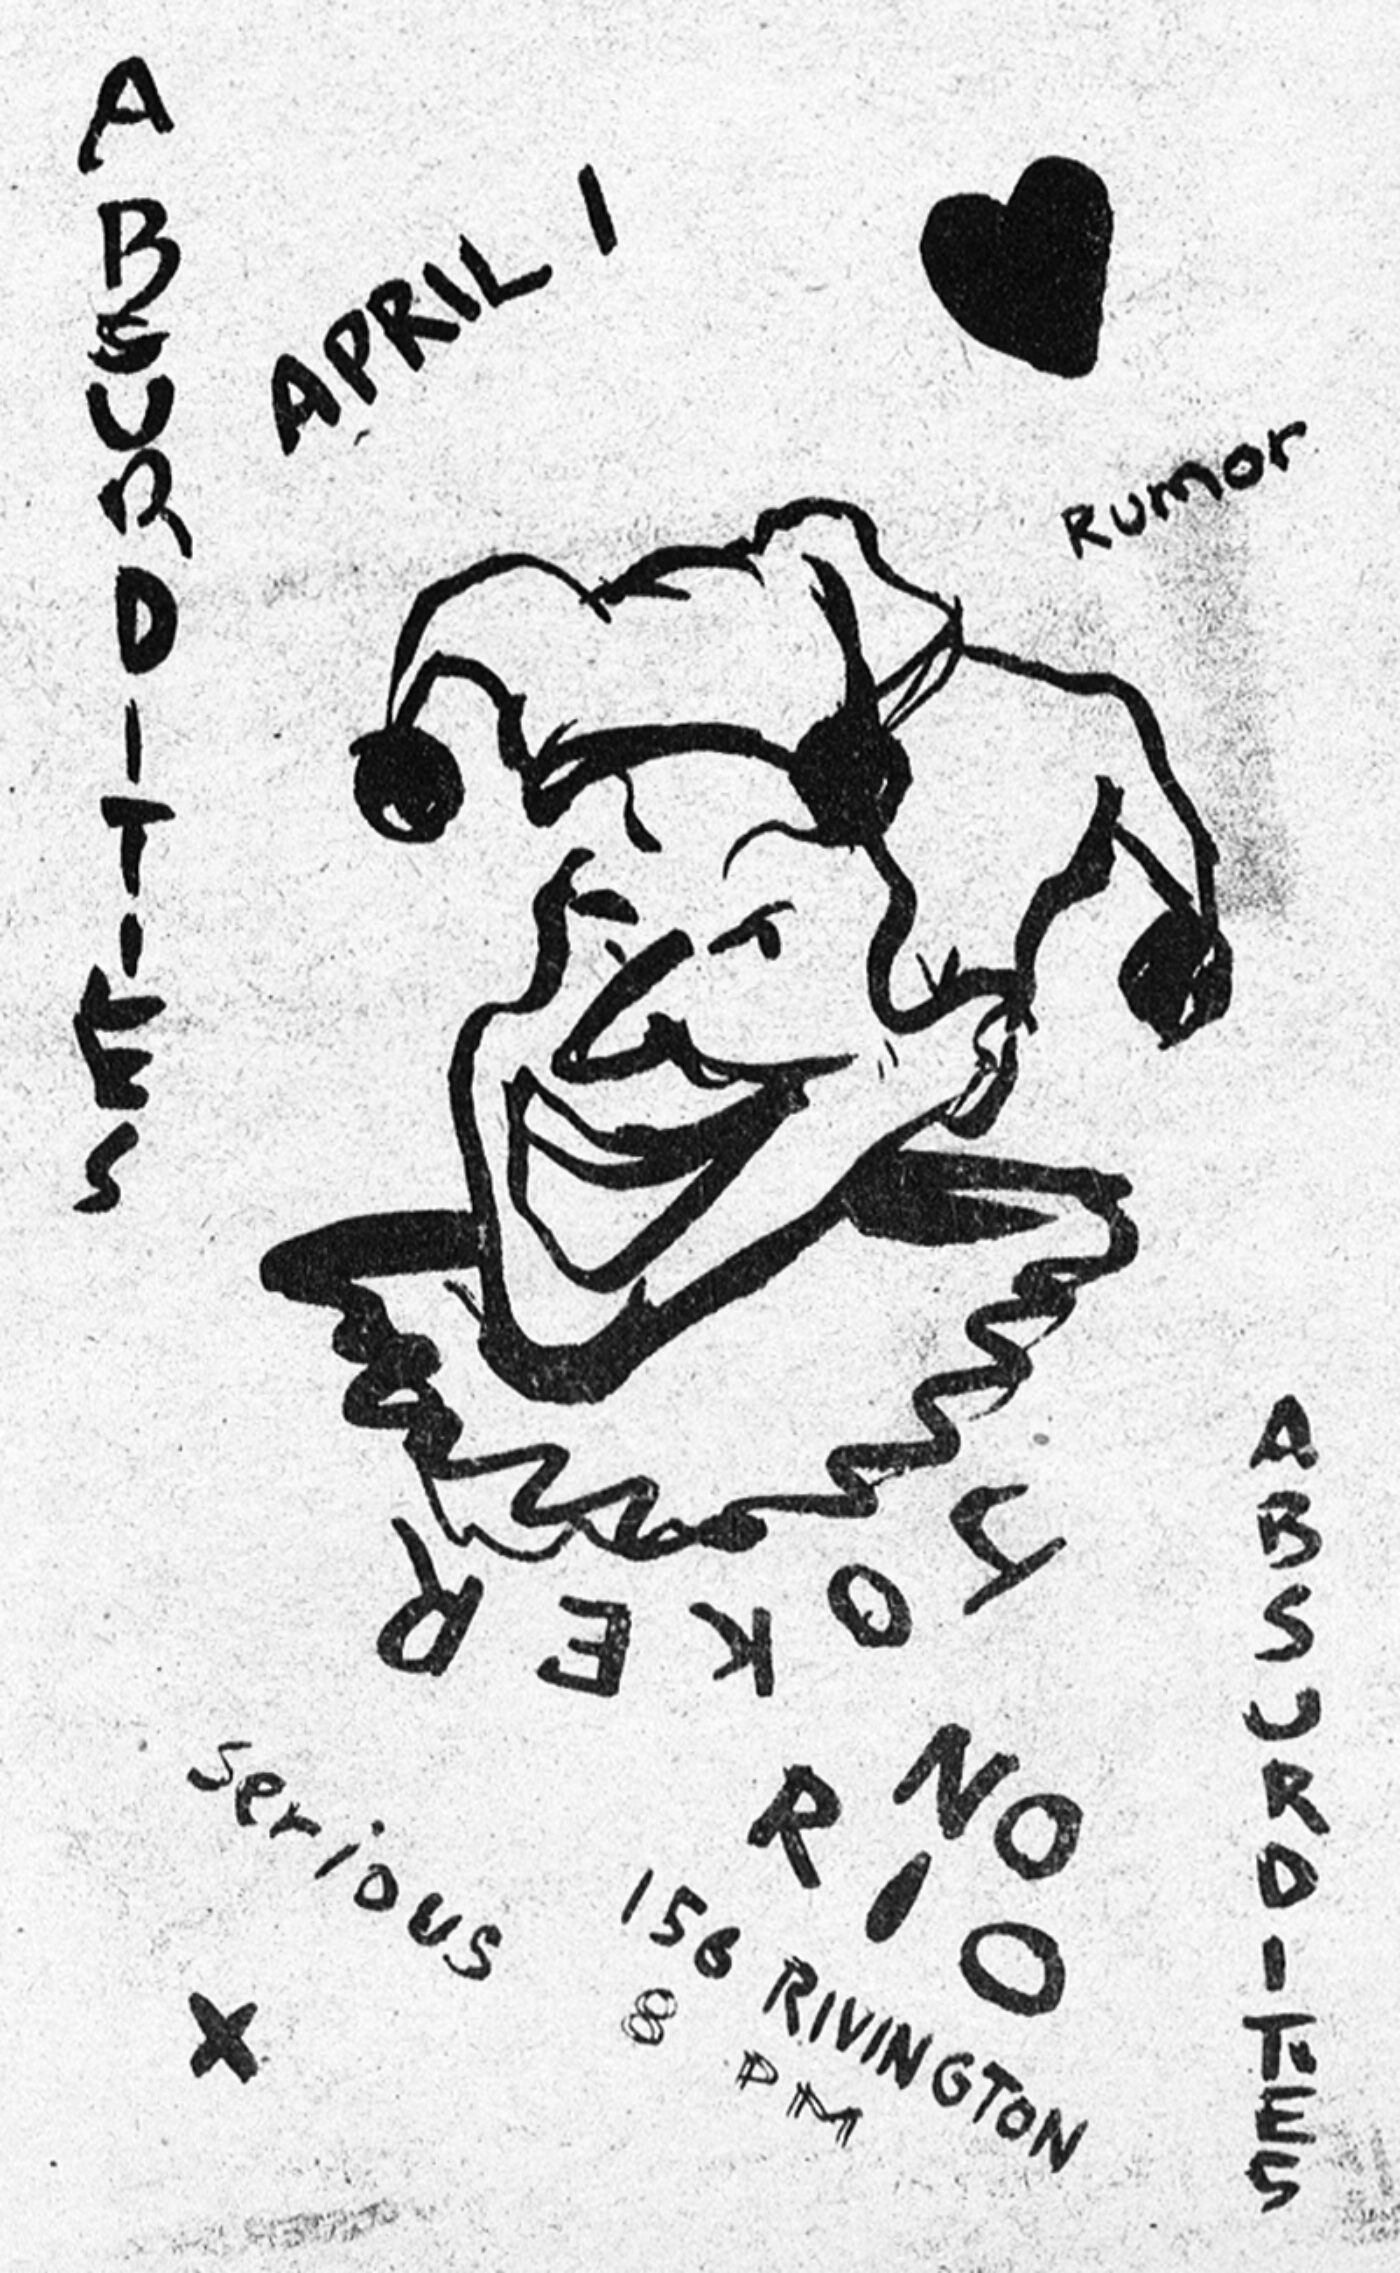 ABSURDITIES
APRIL 1
Rumor
JOKER
Serious
X
NO
RIO
156 RIVINGTON
8 PM
ABSURDITIES